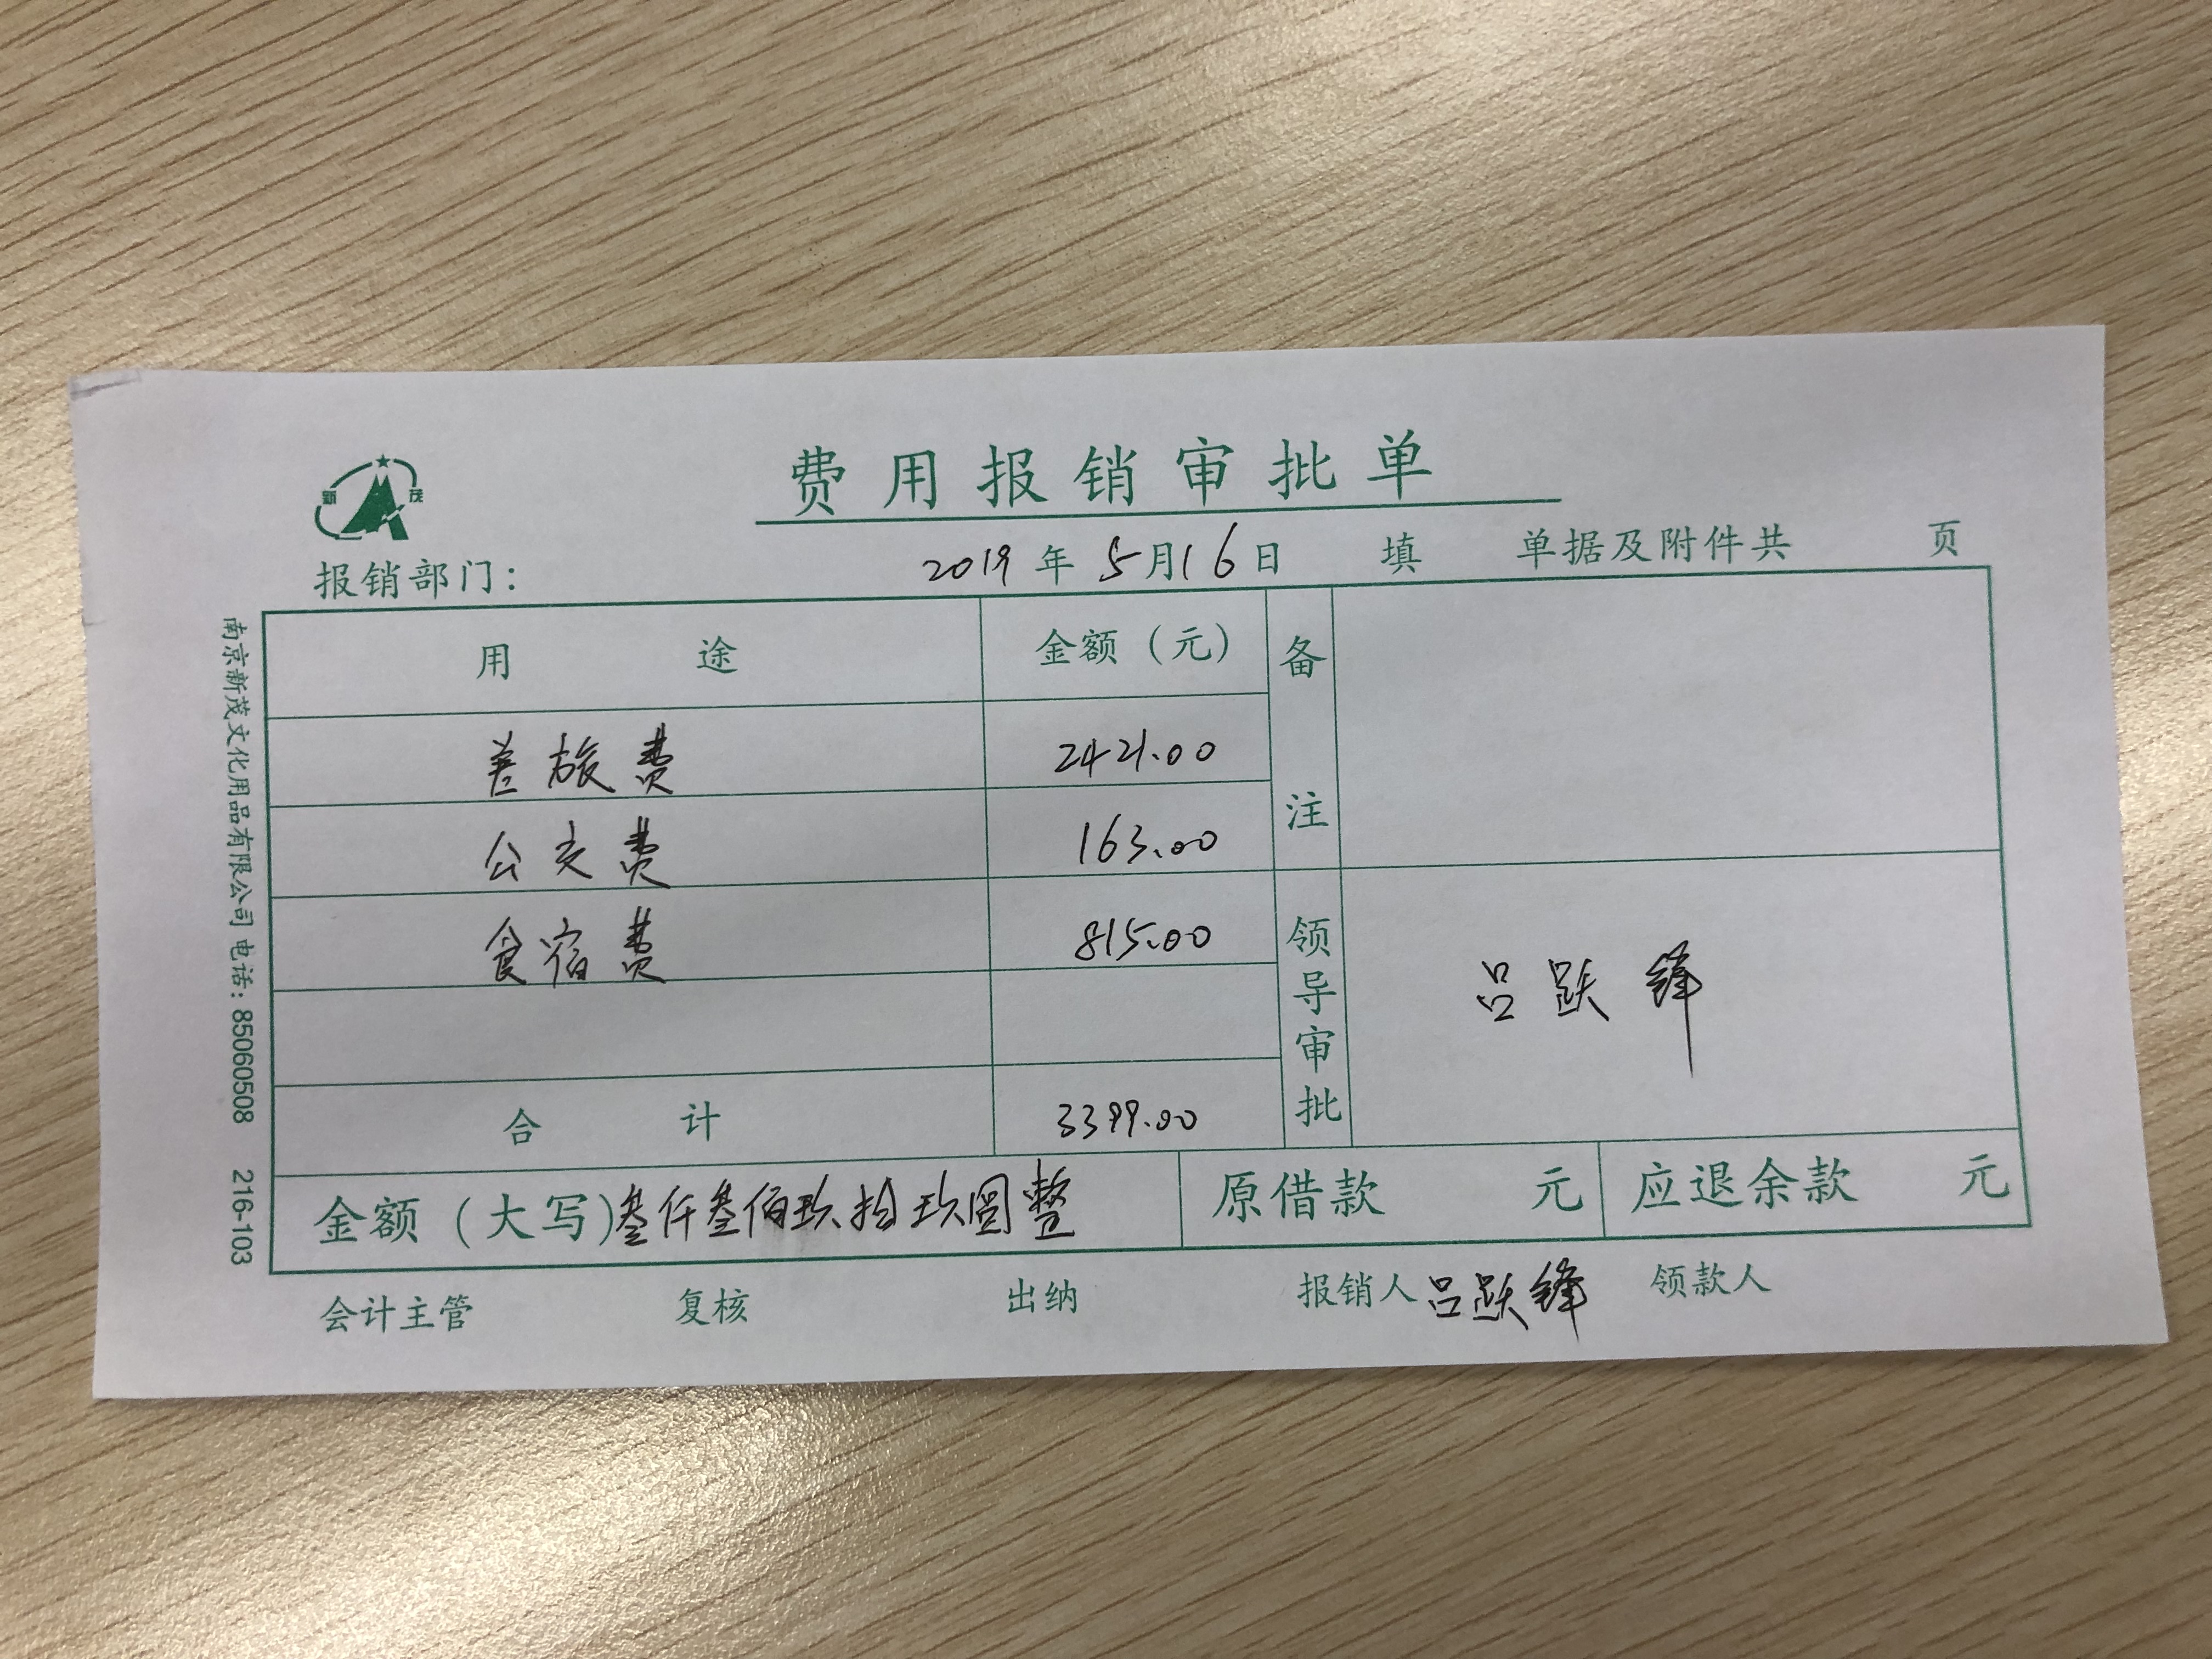 新茂
费用报销审批单
报销部门： 2019年5月16日 填 单据及附件共 页
用途 金额（元） 备注
差旅费 2421.00
公交费 163.00
食宿费 815.00
领导审批
合计 3399.00
金额（大写）叁仟叁佰玖拾玖圆整 原借款 元 应退余款 元
会计主管 复核 出纳 报销人 领款人
南京新茂文化用品有限公司 电话：85060508 216-103